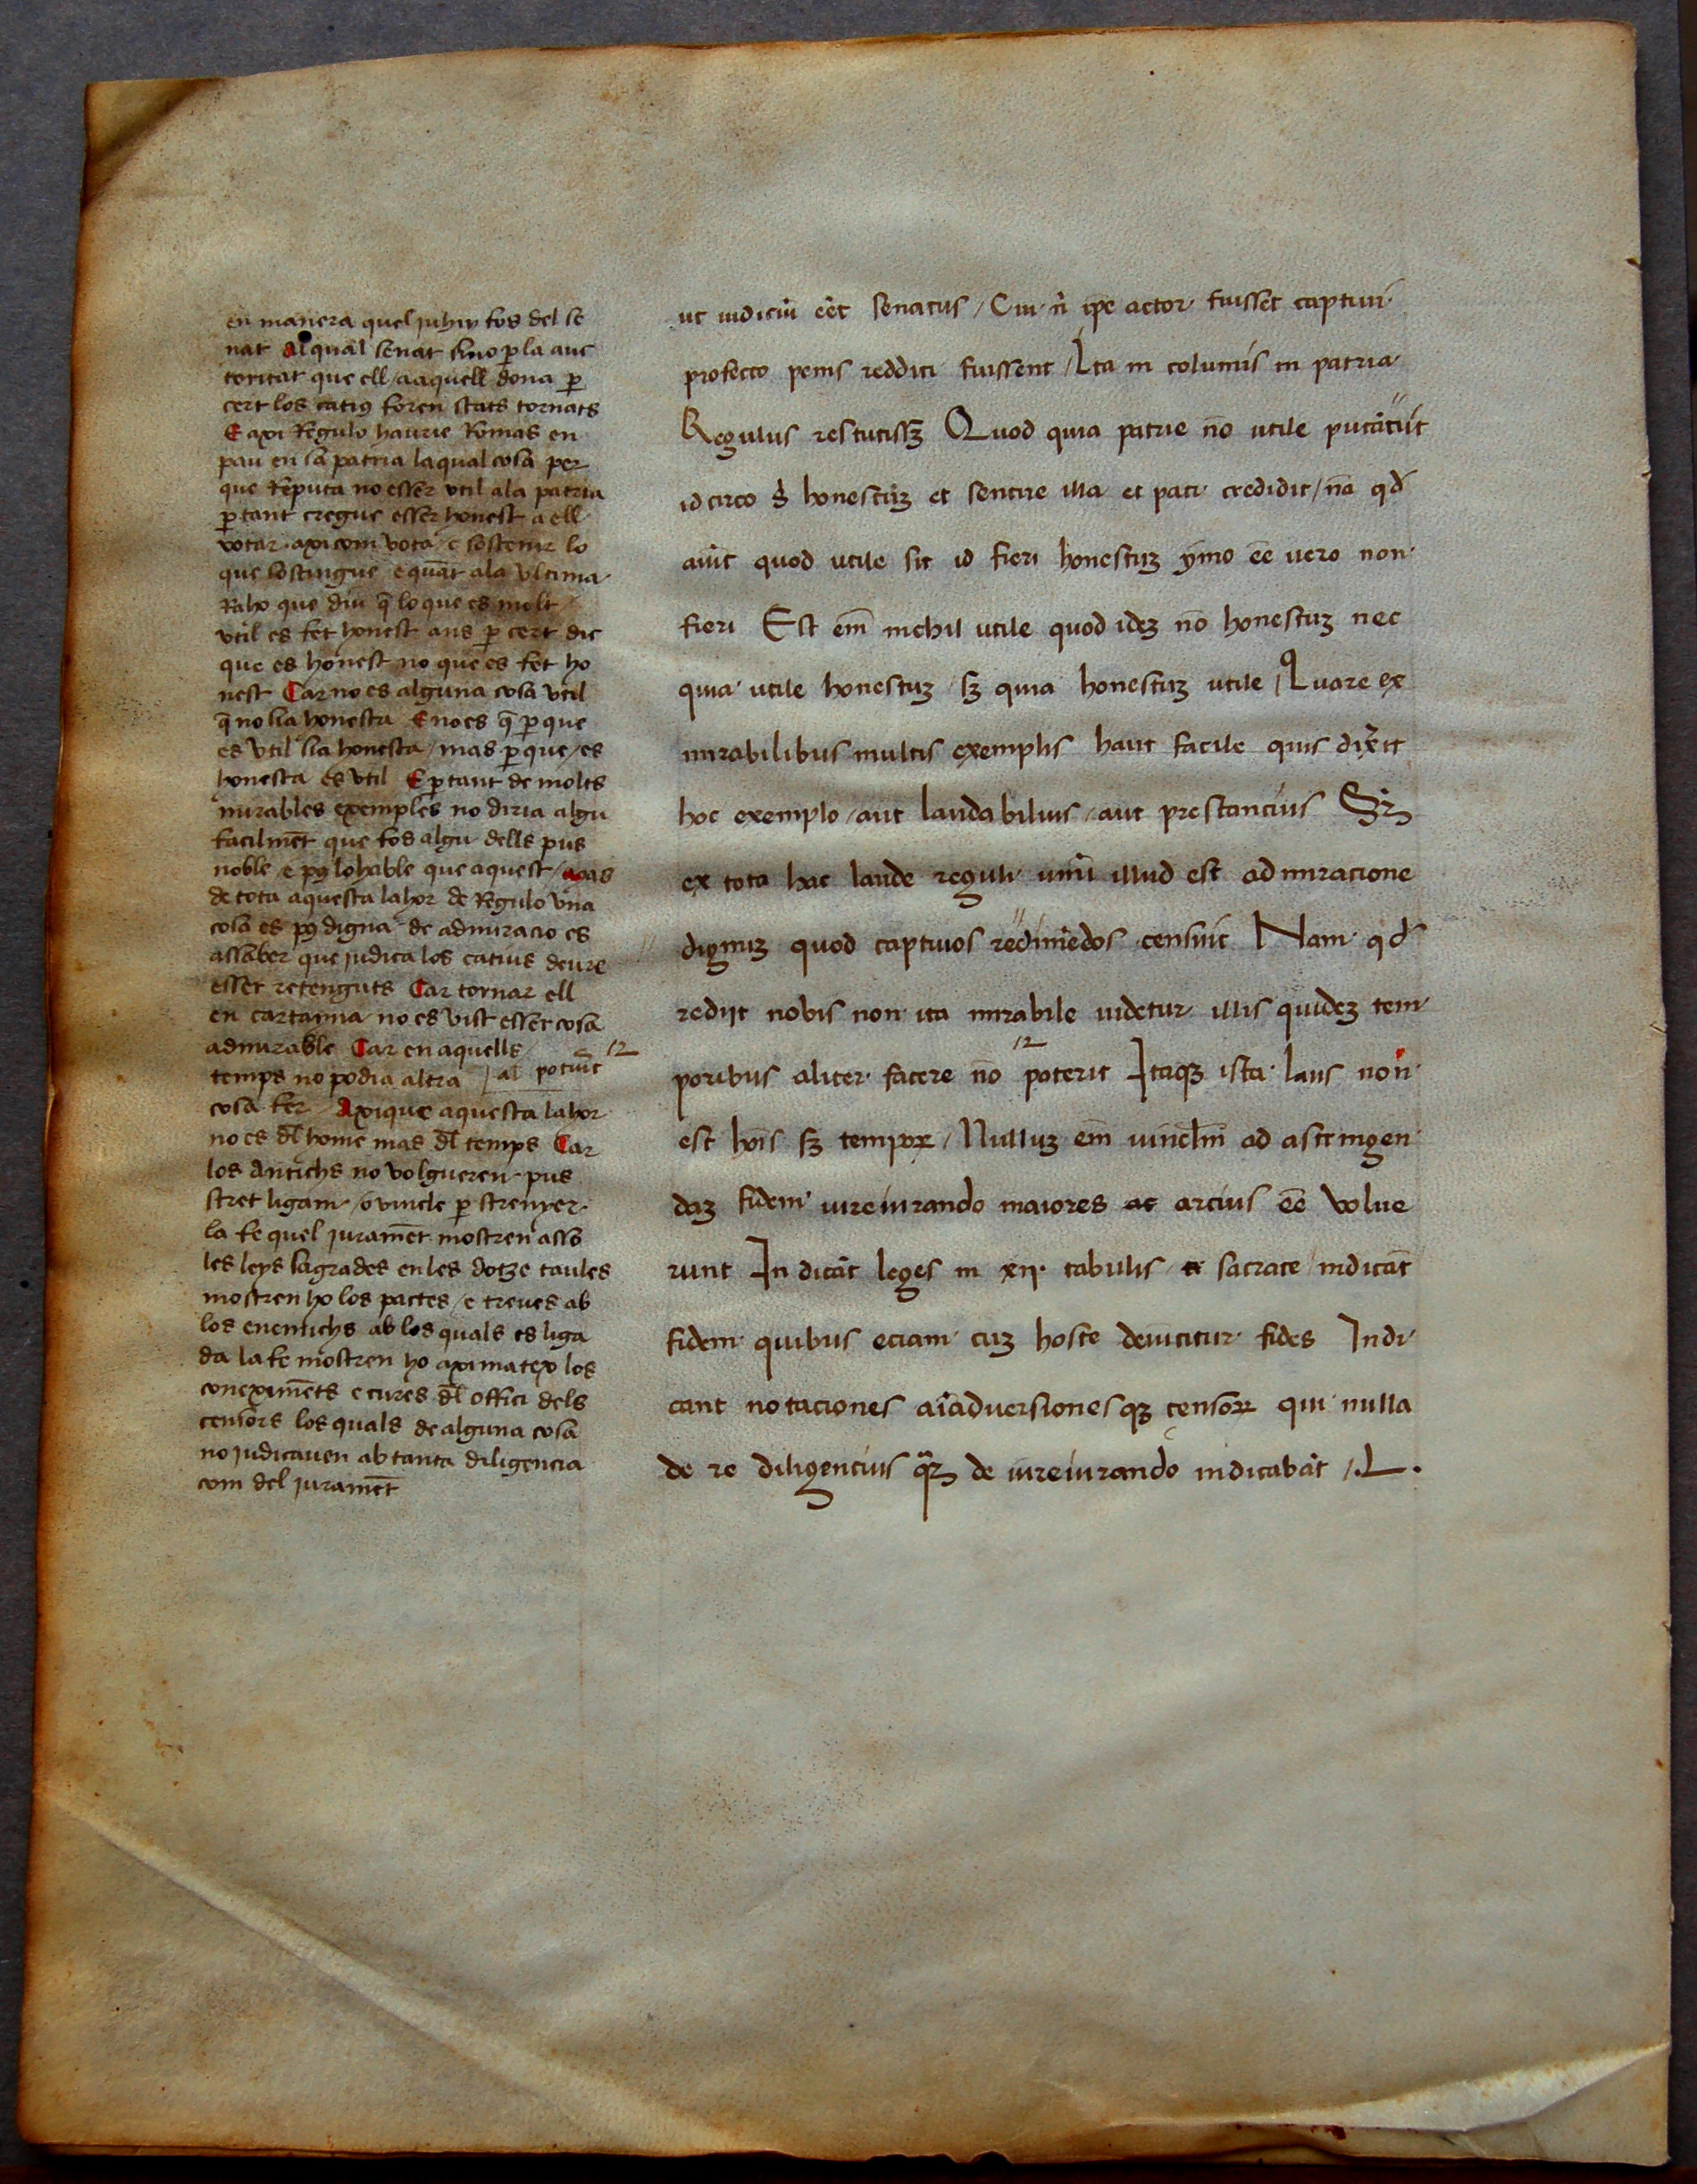 en manera quel juhiy fos del se
nat Al qual senat sino ꝑ la auc
toritat que ell / a aquell dona ꝑ
cert los catiꝯ foren stats tornats
E axi Regulo haurie Romas en
pau en sa patria la qual cosa per
que Reputa no esser vtil a la patria
ꝑ tant cregue esser honest a ell
votar axi com vota / e sostenir lo
que sostingue e quāt a la vltima
Raho que diu q̄ lo que es molt /
vtil es fet honest ans ꝑ cert dic
que es honest no que es fet ho
nest Car no es alguna cosa vtil
q̄ no sia honesta E no es q̄ ꝑ que
es vtil sia honesta / mas ꝑ que / es
honesta es vtil E ꝑ tant de molts
mirables exemples no diria algu
facilmēt que fos algu dells pus
noble / e pꝯ lohable que aquest / Mas
de tota aquesta lahor de Regulo vna
cosa es pꝯ digna de admiracio es
assaber que judica los catius deure
esser retenguts Car tornar ell
en cartayna no es vist esser cosa
admirable Car en aquells /
temps no podia altra | al potuit
cosa fer / Axi que aquesta lahor
no es dl̄ home mas dl̄ temps Car
los Antichs no volgueren pus
stret ligam / o vincle ꝑ strenyer
la fe quel juramēt mostren asso
les leys sagrades en les dotze taules
mostren ho los pactes / e treues ab
los enemichs ab los quals es liga
da la fe mostren ho axi matex los
coneximēts e cures dl̄ offici dels
censors los quals de alguna cosa
no judicauen ab tanta diligencia
com del juramēt
ut iudiciū eēt senatus / Cui n̄ ip̄e actor fuisset captiui
profecto penis redditi fuissent / Ita in columis in patria
Regulus restitissꝫ Quod quia patrie nō utile putāuit
idcirco honestūꝫ et sentire illa et pati credidit / nā qd̄
aiūt quod utile sit id fieri honestuꝫ ymo ēe uero non
fieri Est em̄ nichil utile quod ideꝫ nō honestuꝫ nec
quia utile honestuꝫ / sꝫ quia honestuꝫ utile / Quare ex
mirabilibus multis exemplis haut facile quis dixit
hoc exemplo / aut laudabilius / aut prestancius Sꝫ
ex tota hac laude reguli unū illud est admiracione
dignuꝫ quod captiuos redimēdos censuit Nam qd̄
rediit nobis non ita mirabile uidetur illis quideꝫ tem
poribus aliter facere nō poterit Itaqꝫ ista laus non
est hoīs sꝫ tempoꝝ / Nulluꝫ em̄ uincl̄m ad astringen
daꝫ fidem iureiurando maiores ac arcius ēe volue
runt Indicāt leges in xij. tabulis sacrate indicāt
fidem quibus eciam cuꝫ hoste deuincitur fides Indi
cant notaciones aīaduersionesqꝫ censoꝝ qui nulla
de re diligencius qꝫ de iureiurando indicabāt /.L.